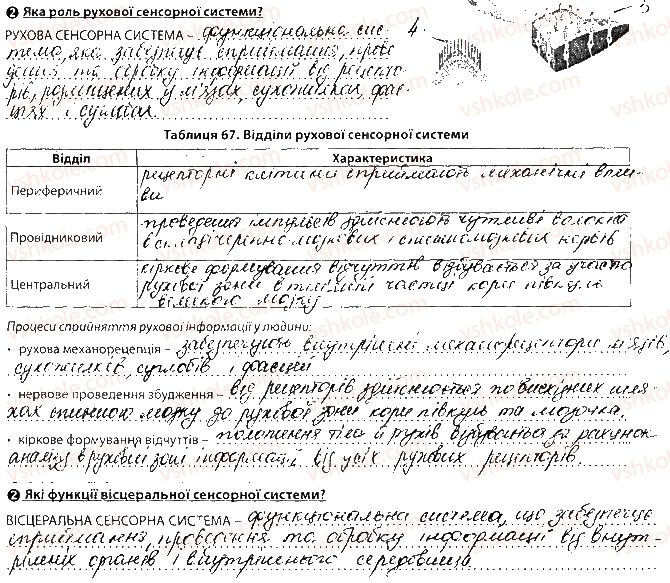 ❷ Яка роль рухової сенсорної системи?
РУХОВА СЕНСОРНА СИСТЕМА – функціональна сис-
тема, яка забезпечує сприймання, прове-
дення та обробку інформації від рецепто-
рів, розміщених у м'язах, сухожилках, фас-
ціях і суглобах.
4
5
Таблиця 67. Відділи рухової сенсорної системи
Відділ Характеристика
Периферичний рецепторні клітини сприймають механічні впли-
ви
Провідниковий проведення імпульсів здійснюють чутливі волокна
в складі черепно-мозкових і спинномозкових нервів
Центральний кіркове формування відчуттів відбувається за участю
рухової зони в тім'яній частці кори півкуль
великого мозку
Процеси сприйняття рухової інформації у людини:
• рухова механорецепція – забезпечують внутрішні механорецептори м'язів,
сухожилків, суглобів і фасцій
• нервове проведення збудження – від рецепторів здійснюється по висхідних шля-
хах спинного мозку до рухової зони кори півкуль та мозочка.
• кіркове формування відчуттів – положення тіла й рухів відбувається за рахунок
аналізу в руховій зоні інформації від усіх рухових рецепторів.
❷ Які функції вісцеральної сенсорної системи?
ВІСЦЕРАЛЬНА СЕНСОРНА СИСТЕМА – функціональна система, що забезпечує
сприймання, проведення та обробку інформації від внут-
рішніх органів і внутрішнього середовища
vshkole.com